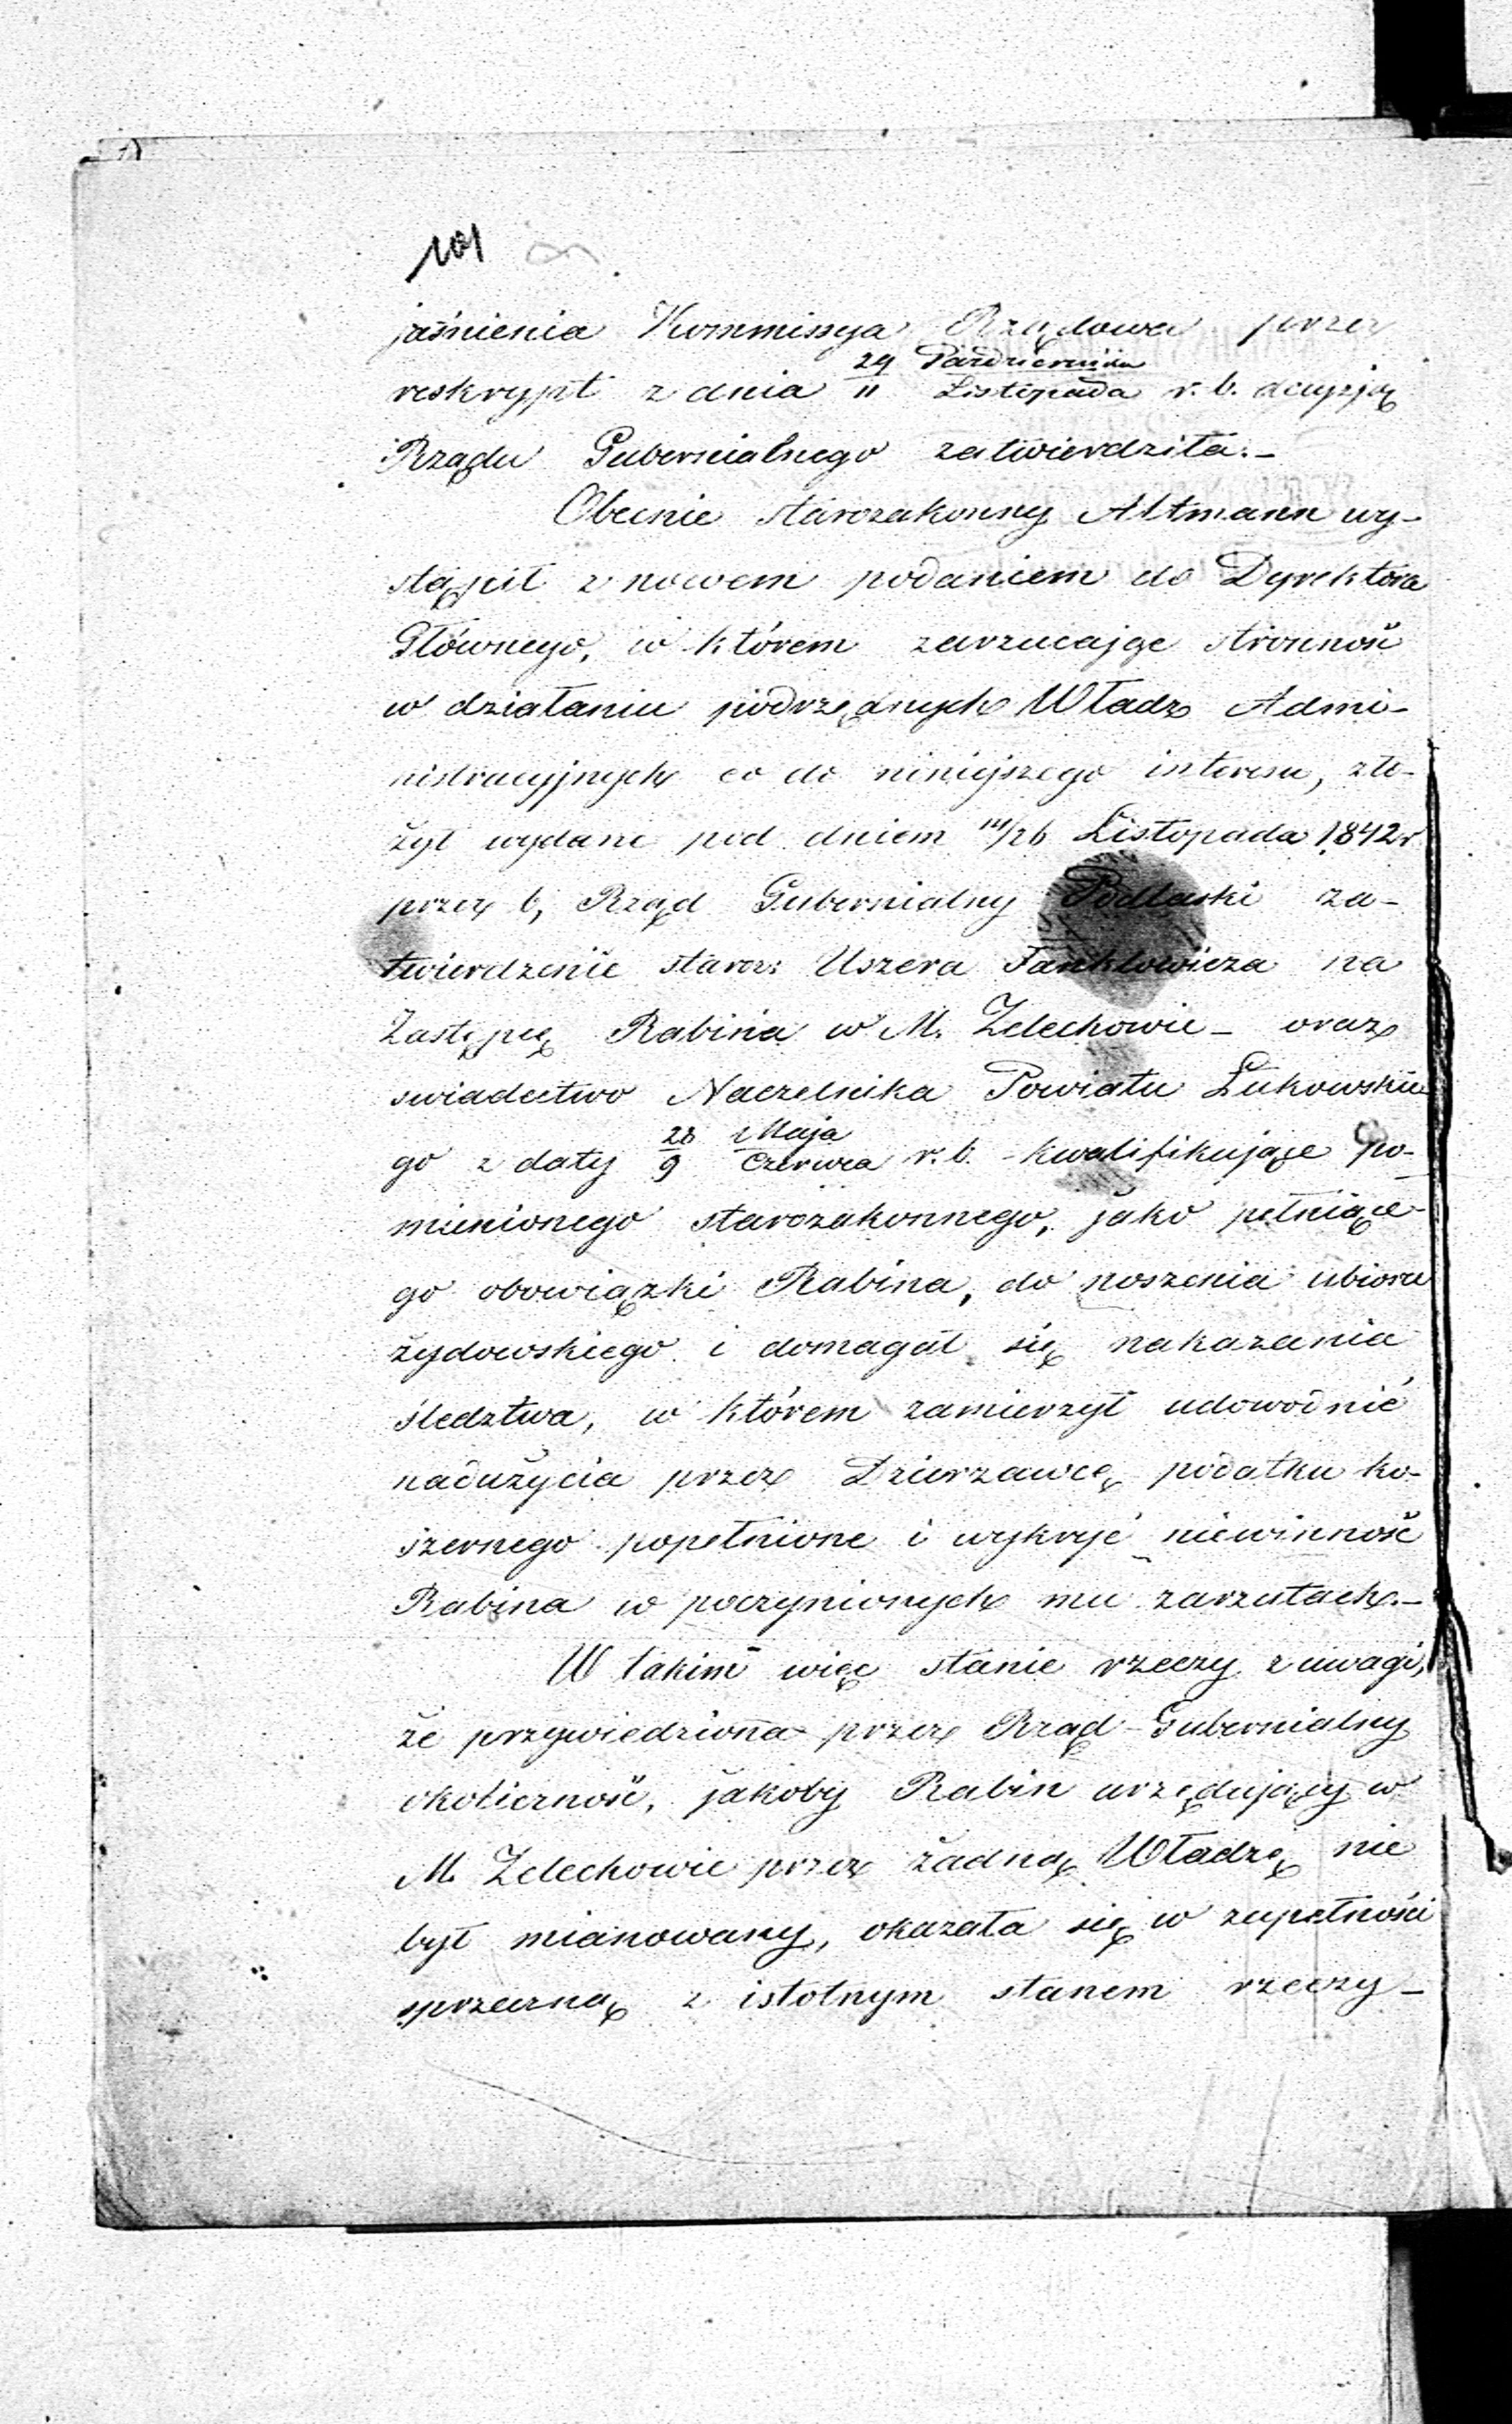 101
jaśnienia Kommissya Rządowa przez
reskrypt z dnia 29/11 Października/Listopada r. b. decyzją
Rządu Gubernialnego zatwierdziła.-
Obecnie starozakonny Altmann wy-
stąpił z nowem podaniem do Dyrektora
Głównego, w którem zarzucając stronność
w działaniu podrzędnych Władz Admi-
nistracyjnych co do niniejszego interesu, zło-
żył wydane pod dniem 14/26 Listopada 1842 r
przez b, Rząd Gubernialny Podlaski za-
twierdzenie staroz: Uszera Fanklowicza na
Zastępcę Rabina w M. Zelechowie - oraz
swiadectwo Naczelnika Powiatu Łukowskie
go z daty 28/9 Maja/Czerwca r. b. kwalifikujące po-
mienionego starozakonnego, jako pełniące-
go obowiązki Rabina, do noszenia ubioru
żydowskiego i domagał się nakazania
śledztwa, w którem zamierzył udowodnić
nadużycia przez Dzierzawcę podatku ko-
szernego popełnione i wykryć niewinność
Rabina w poczynionych mu zarzutach.-
W takim więc stanie rzeczy z uwagi,
że przywiedziona przez Rząd Gubernialny
okoliczność, jakoby Rabin urzędujący w
M. Zelechowie przez żadną Władzę nie
był mianowany, okazała się w zupełności
sprzeczną z istotnym stanem rzeczy -